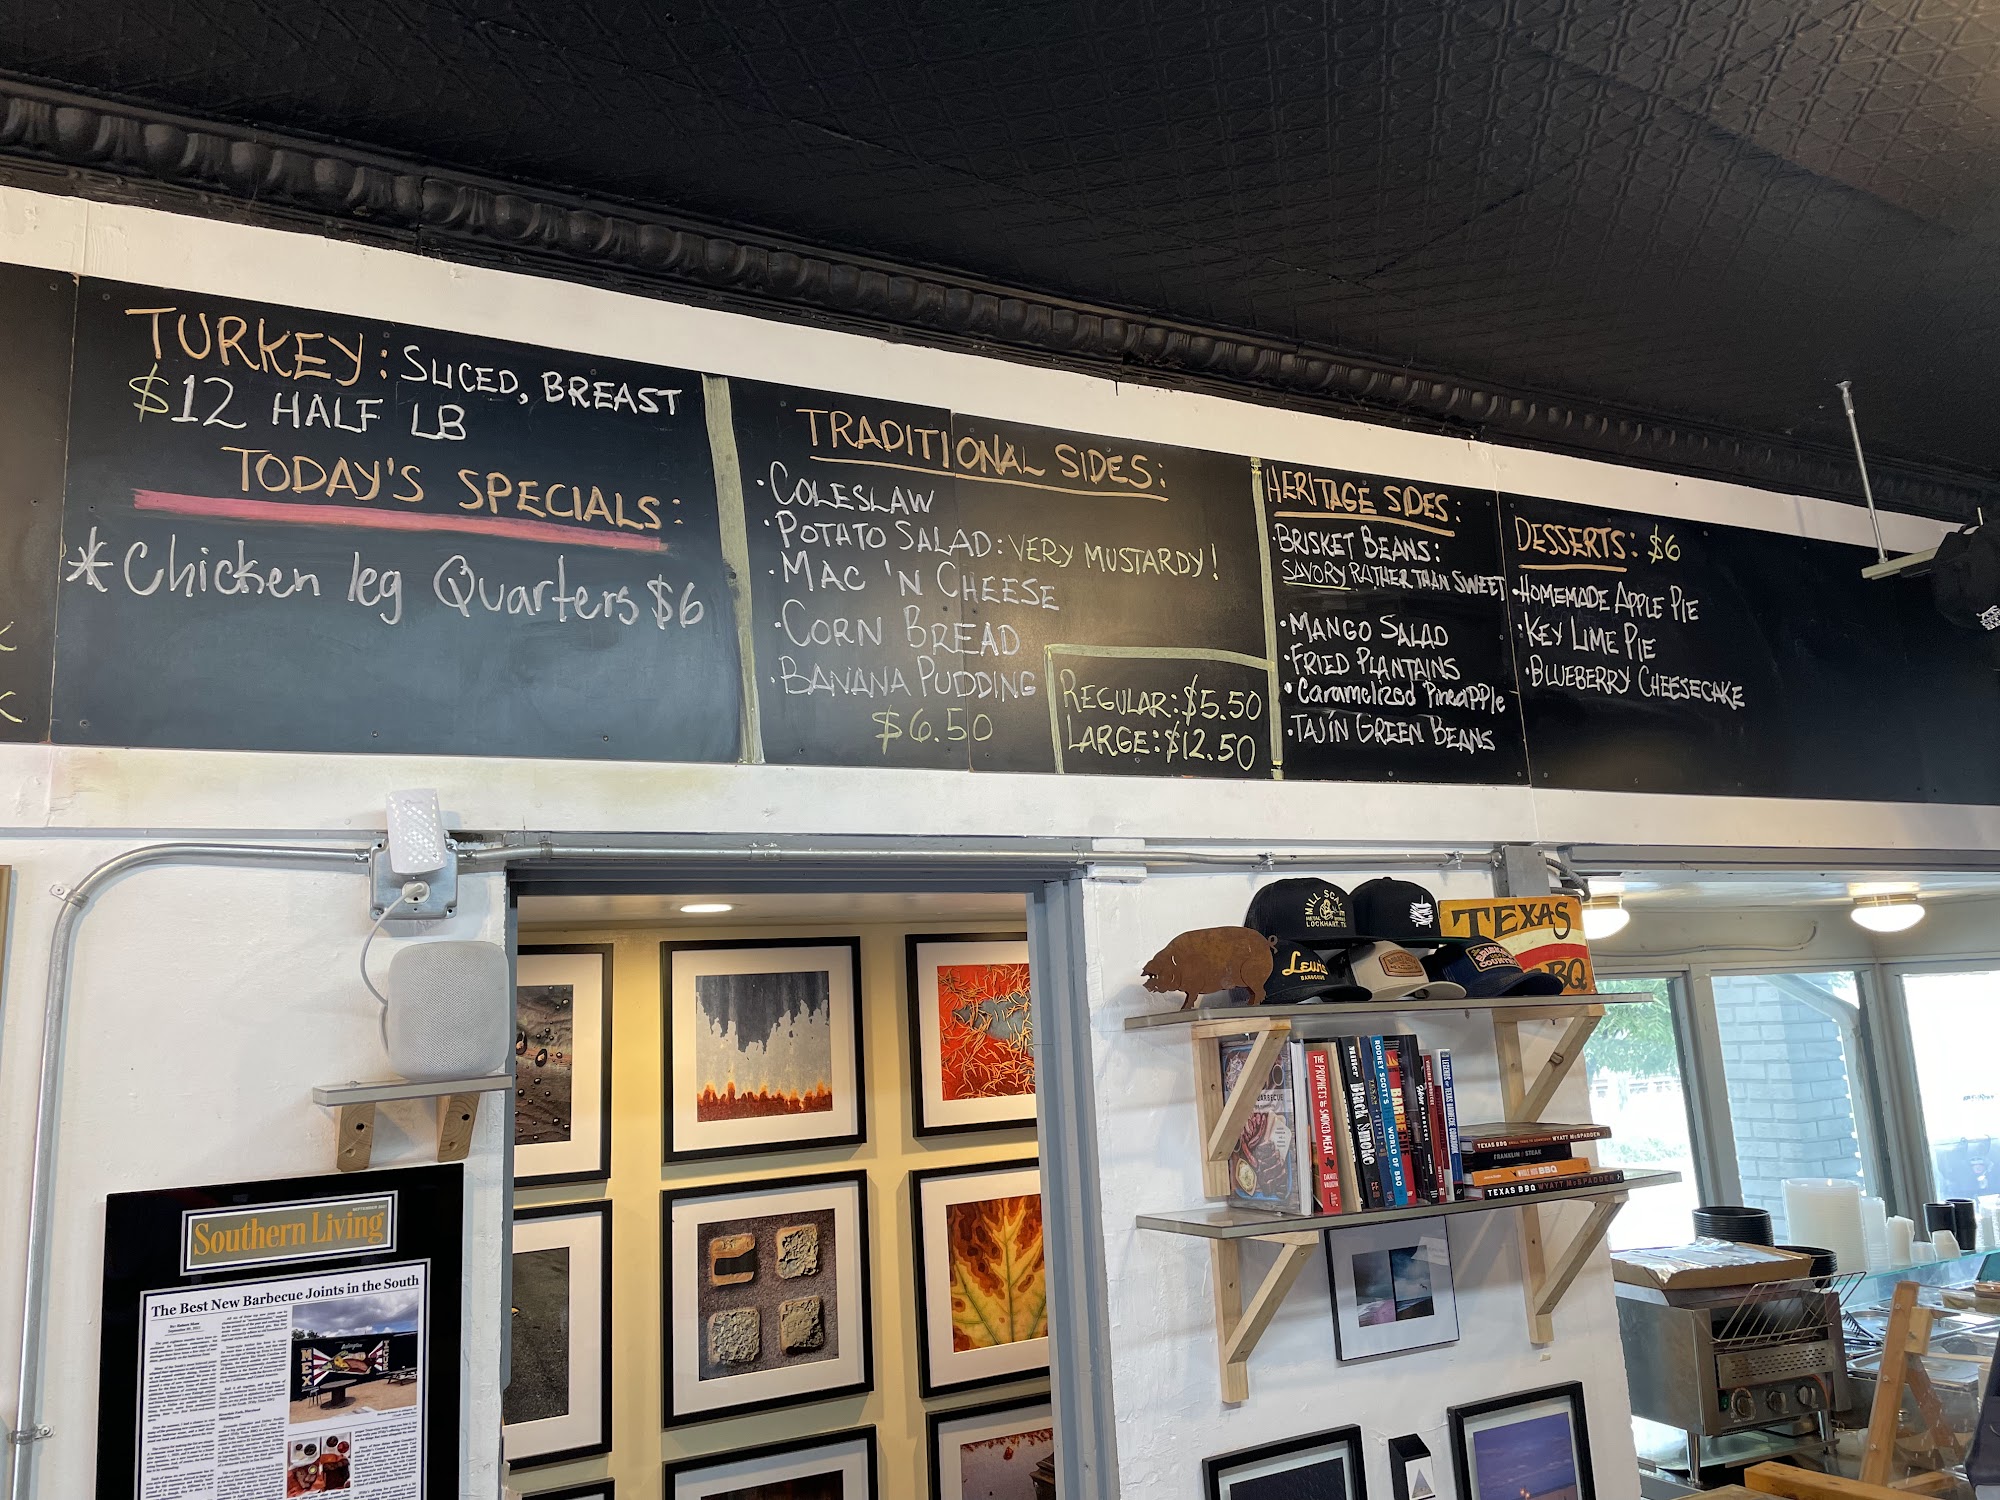 TURKEY: SLICED, BREAST
$12 HALF LB
TODAY'S SPECIALS:
* Chicken leg Quarters $6
TRADITIONAL SIDES:
· COLESLAW
· POTATO SALAD: VERY MUSTARDY!
· MAC 'N CHEESE
· CORN BREAD
· BANANA PUDDING
$6.50
REGULAR: $5.50
LARGE: $12.50
HERITAGE SIDES:
· BRISKET BEANS:
SAVORY RATHER THAN SWEET
· MANGO SALAD
· FRIED PLANTAINS
· Caramelized Pineapple
· TAJÍN GREEN BEANS
DESSERTS: $6
· HOMEMADE APPLE PIE
· KEY LIME PIE
· BLUEBERRY CHEESECAKE
MILL SCALE
METAL WORKS
LOCKHART, TX
TEXAS
BBQ
Lewis
BARBECUE
THE PROPHETS OF SMOKED MEAT
DANIEL VAUGHN
Black Smoke
RODNEY SCOTT'S WORLD OF BBQ
LEGENDS OF TEXAS BARBECUE COOKBOOK
TEXAS BBQ WYATT McSPADDEN
FRANKLIN STEAK
WHOLE HOG BBQ
TEXAS BBQ WYATT McSPADDEN
Southern Living
The Best New Barbecue Joints in the South